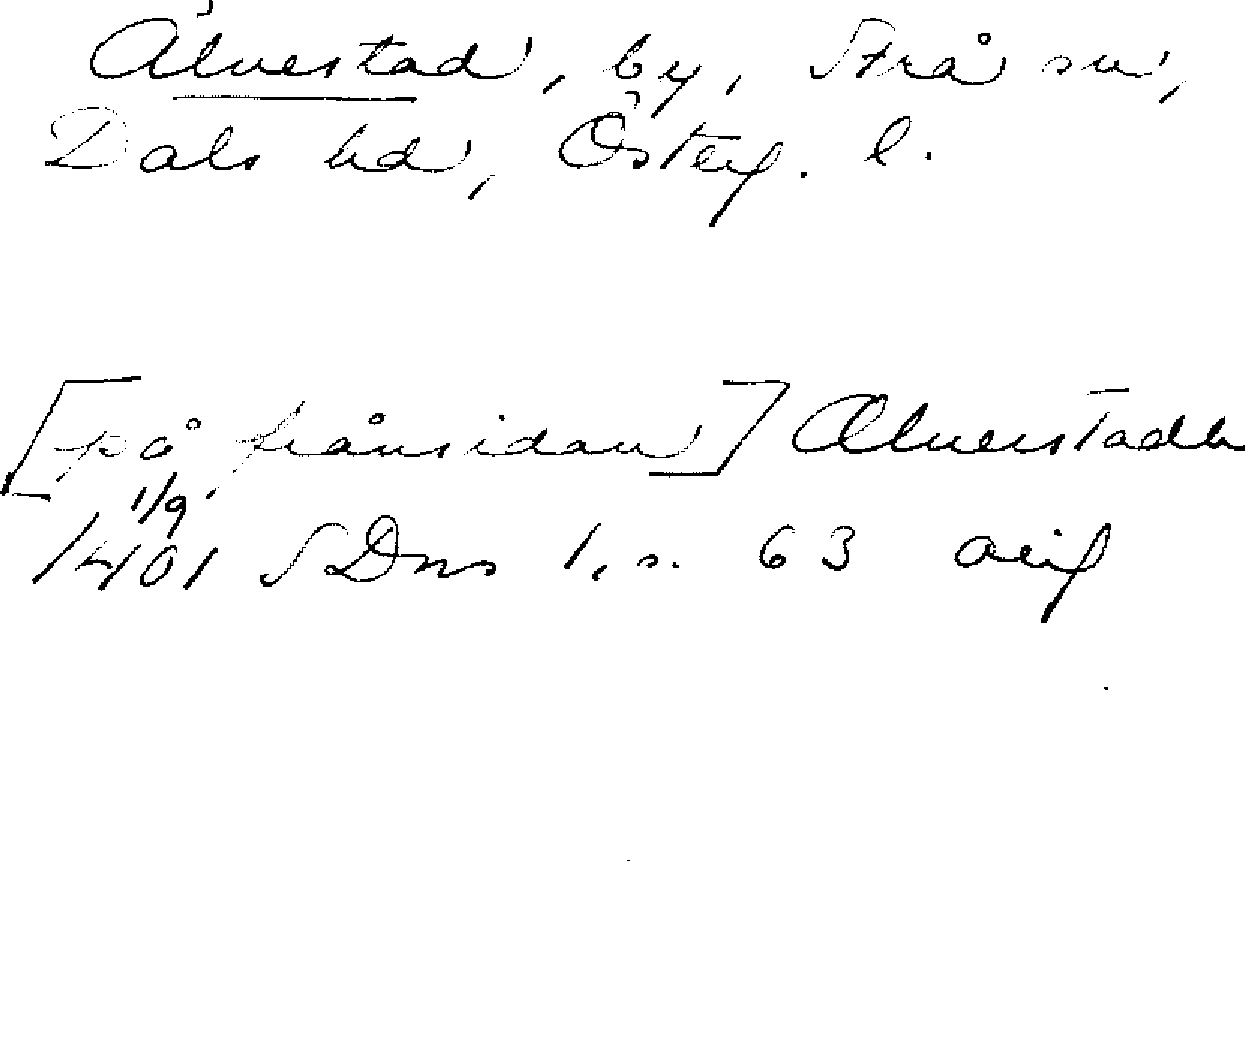 Älvestad, by, Strå sn,
Dals hd, Österg. l.
[på frånsidan] Ælverstadh
1/9
1401 SDns 1, s. 63 orig